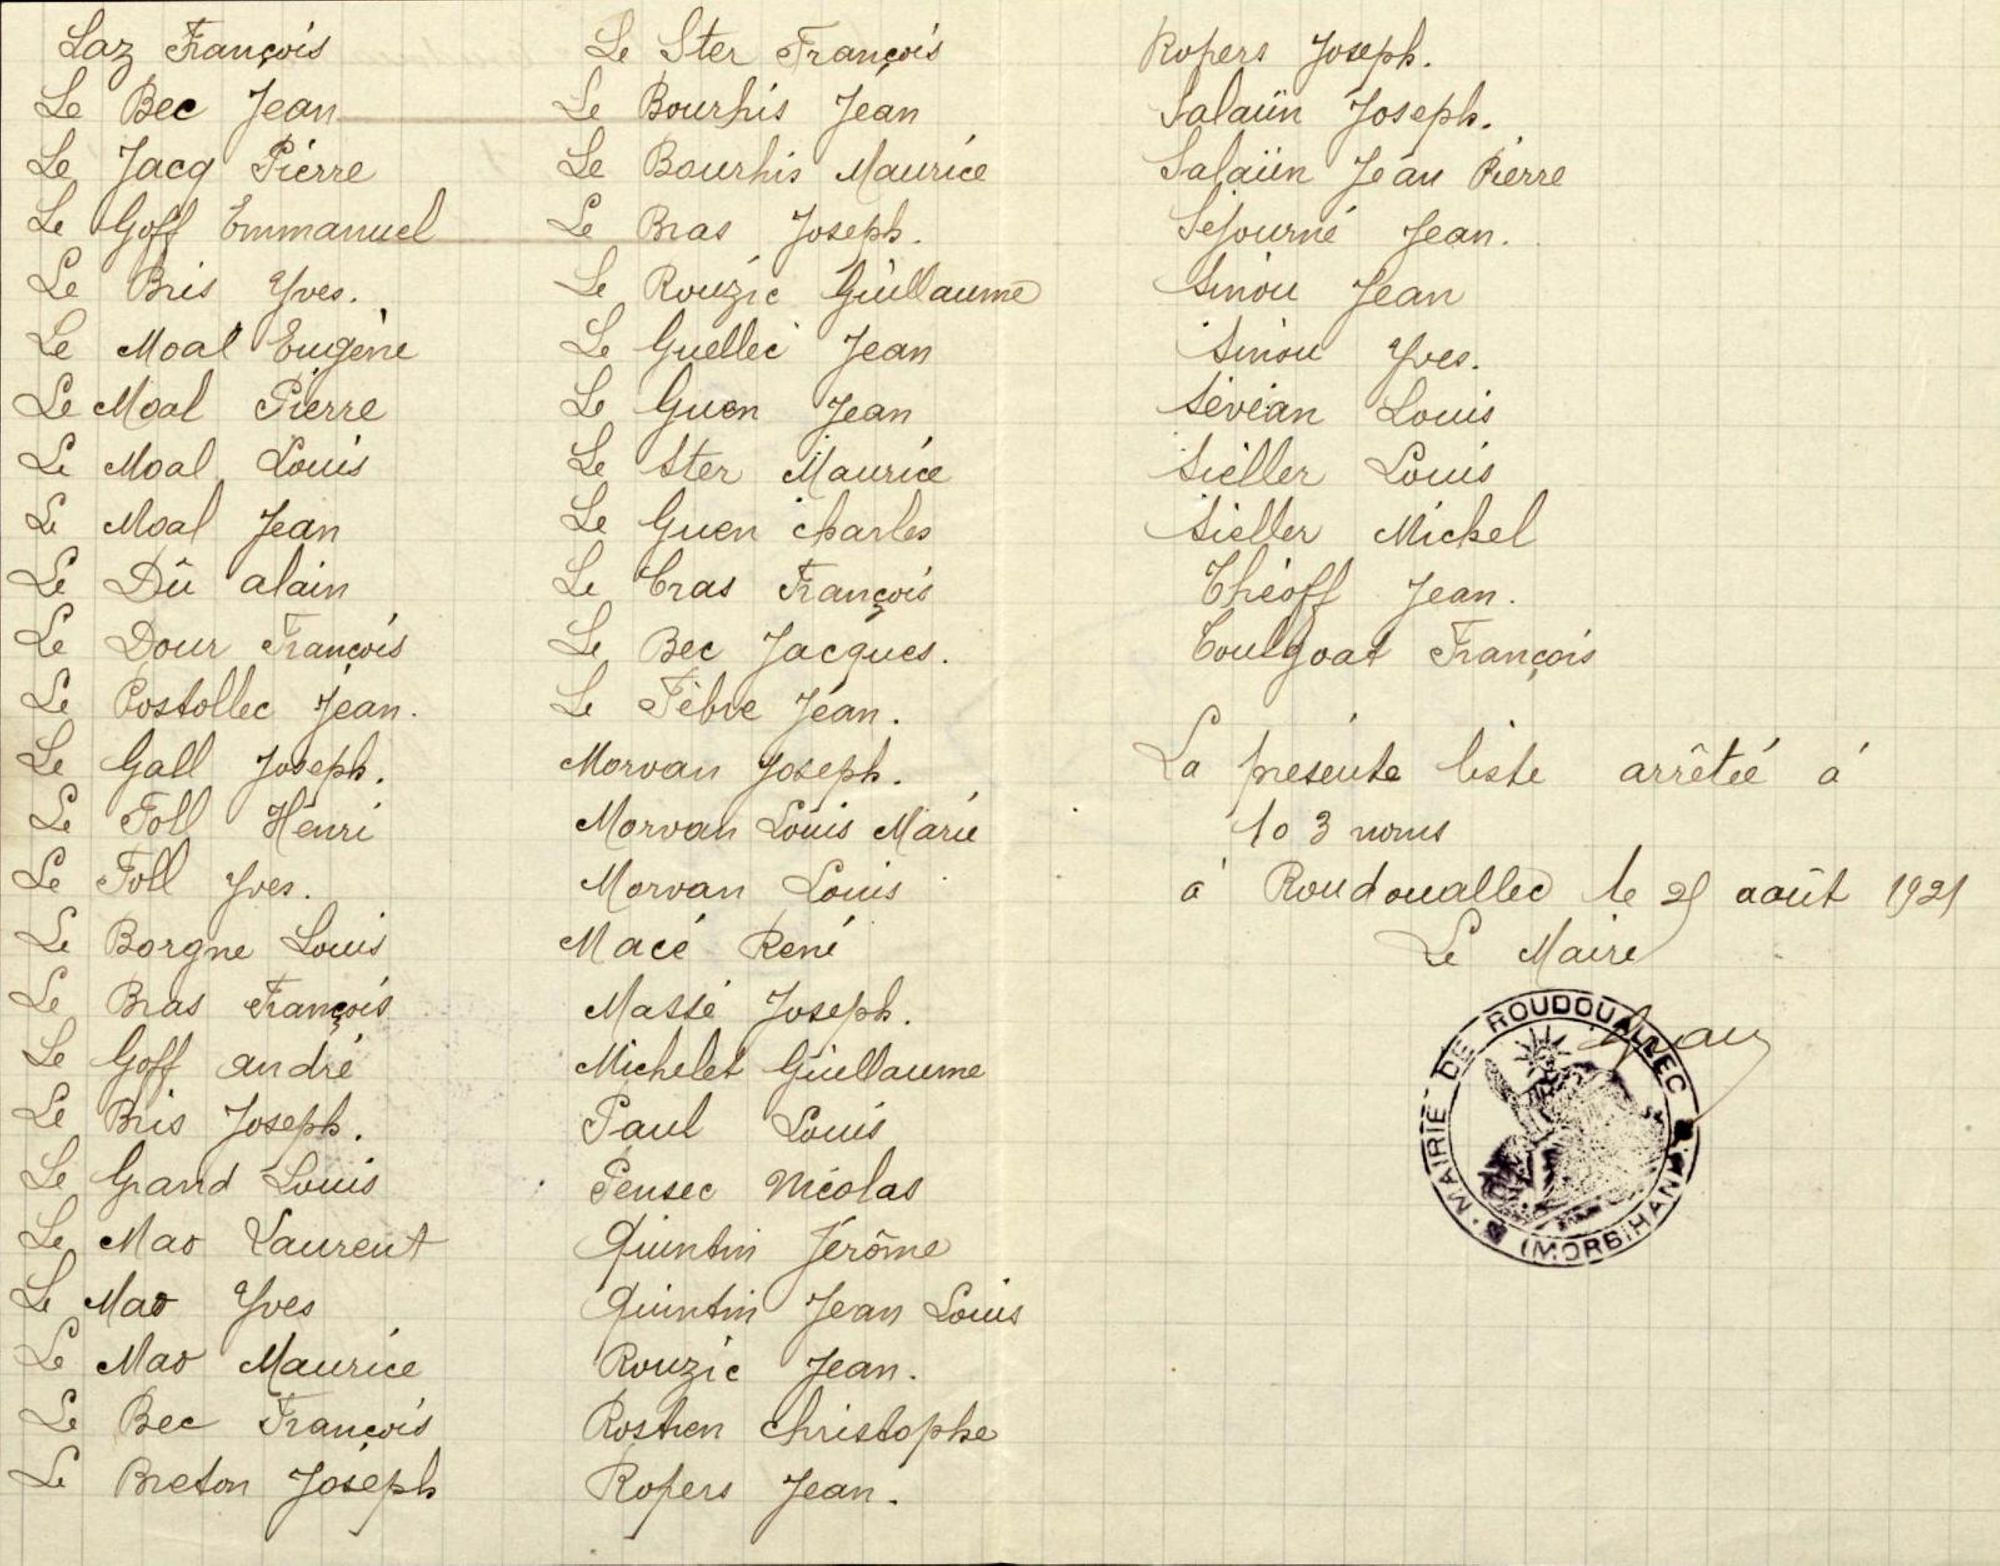 Laz François
Le Bec Jean
Le Jacq Pierre
Le Goff Emmanuel
Le Bris Yves.
Le Moal Eugène
Le Moal Pierre
Le Moal Louis
Le Moal Jean
Le Dû alain
Le Dour François
Le Postollec Jean.
Le Gall Joseph.
Le Foll Henri
Le Foll Yves.
Le Borgne Louis
Le Bras François
Le Goff andré
Le Bris Joseph.
Le Grand Louis
Le Mao Laurent
Le Mao Yves
Le Mao Maurice
Le Bec François
Le Breton Joseph
Le Ster François
Le Bourhis Jean
Le Bourhis Maurice
Le Bras Joseph.
Le Rouzic Guillaume
Le Guellec Jean
Le Guen Jean
Le Ster Maurice
Le Guen charles
Le Cras François
Le Bec Jacques.
Le Fèbre Jean.
Morvan Joseph.
Morvan Louis Marie
Morvan Louis
Macé René
Massé Joseph.
Michelet Guillaume
Paul Louis
Pensec Nicolas
Quintin Jérôme
Quintin Jean Louis
Rouzic Jean.
Rostren christophe
Ropers Jean.
Ropers Joseph.
Salaün Joseph.
Salaün Jean Pierre
Séjourné Jean.
Sinou Jean
Sinou Yves.
Sévéan Louis
Siéller Louis
Siéller Michel
Théoff Jean.
Toulgoat François
La présente liste arrêtée à
103 noms
à Roudouallec le 25 août 1921
Le Maire
MAIRIE DE ROUDOUALLEC
(MORBIHAN)